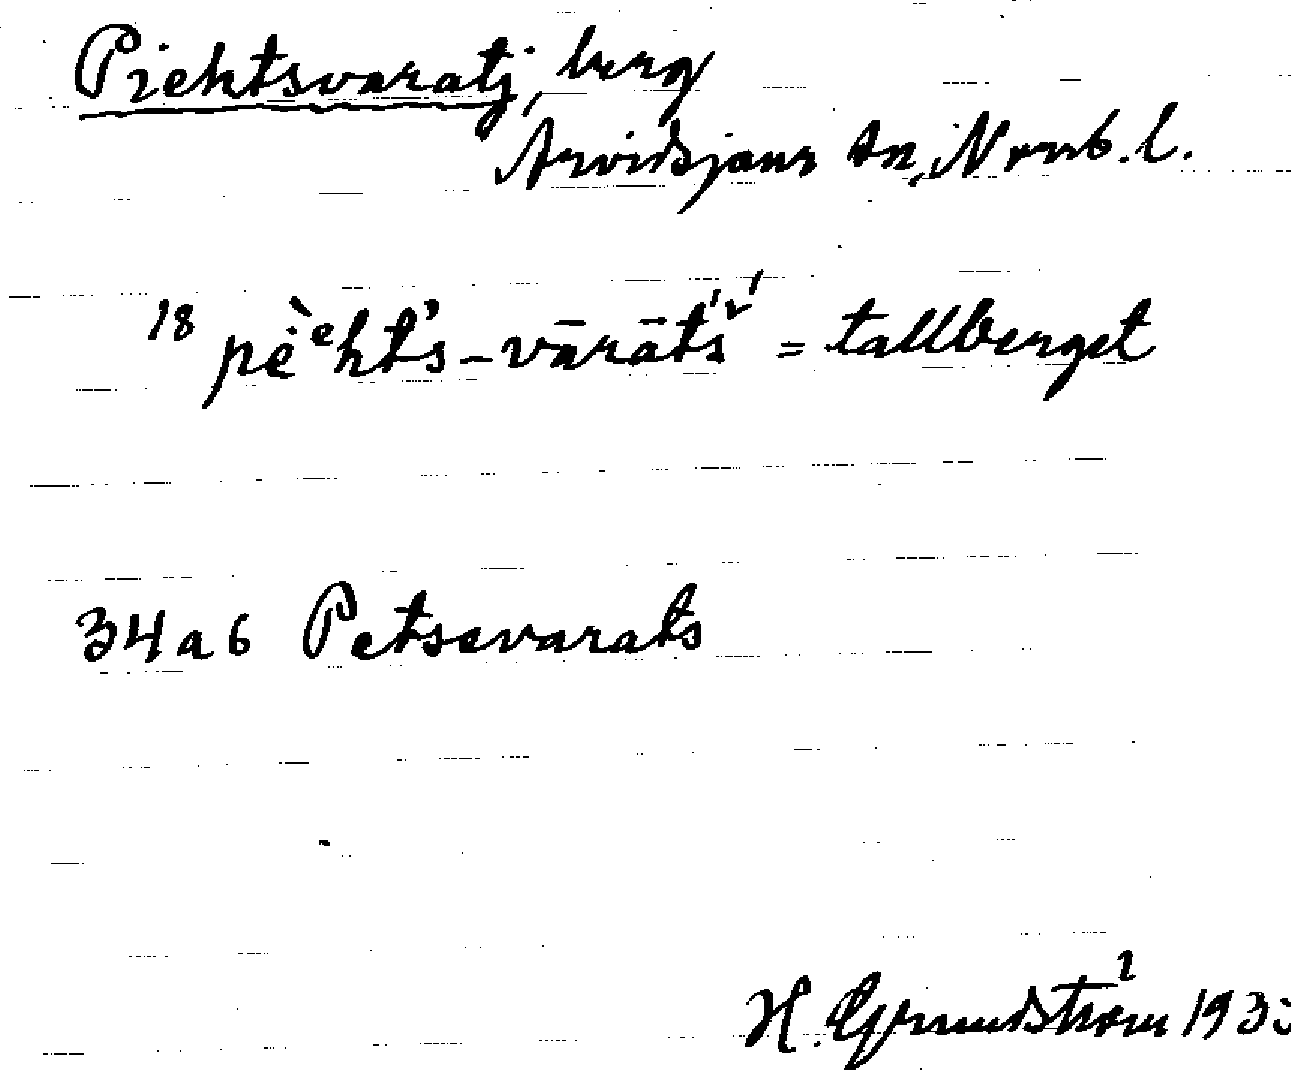 Piehtsvaratj, berg
Arvidsjaurs sn, Norrb. l.
18 pèͤht's-vārāt's̀̌' = tallberget
34 a 6 Petsevarats
H. Grundström 193